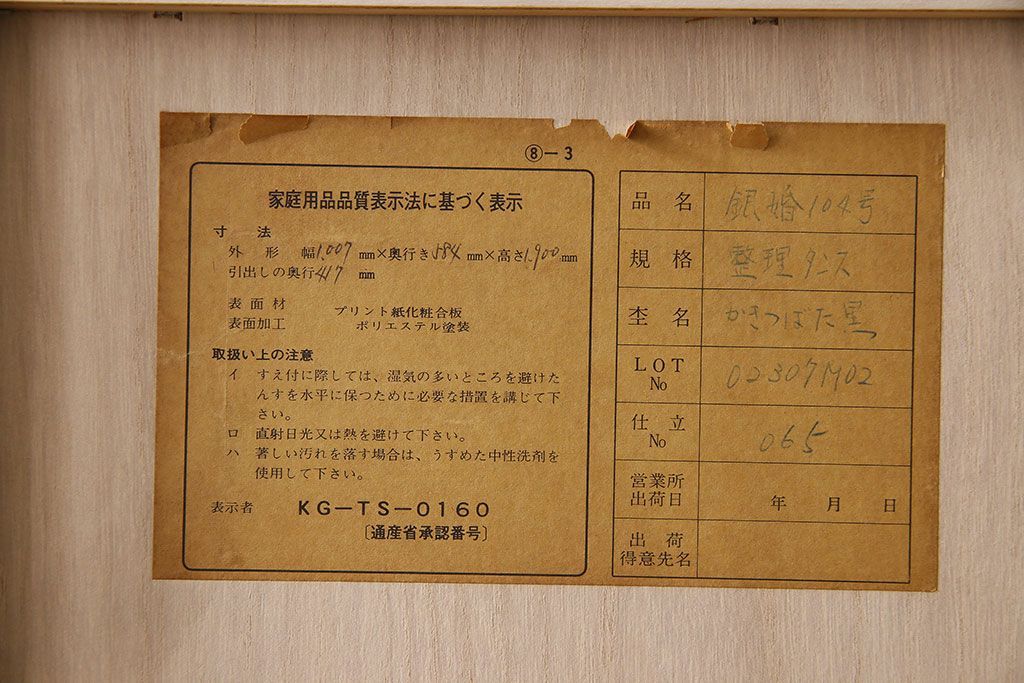 ⑧－3
家庭用品品質表示法に基づく表示
寸 法
外 形 幅1,007 mm×奥行き584 mm×高さ1,900 mm
引出しの奥行417 mm
表 面 材 プリント紙化粧合板
表面加工 ポリエステル塗装
取扱い上の注意
イ すえ付に際しては、湿気の多いところを避けた
んすを水平に保つために必要な措置を講じて下
さい。
ロ 直射日光又は熱を避けて下さい。
ハ 著しい汚れを落す場合は、うすめた中性洗剤を
使用して下さい。
表示者 KG－TS－0160
〔通産省承認番号〕
品 名 銀婚104号
規 格 整理タンス
杢 名 かきつばた黒
LOT No 02307M02
仕 立 No 065
営業所
出荷日 年 月 日
出 荷
得意先名